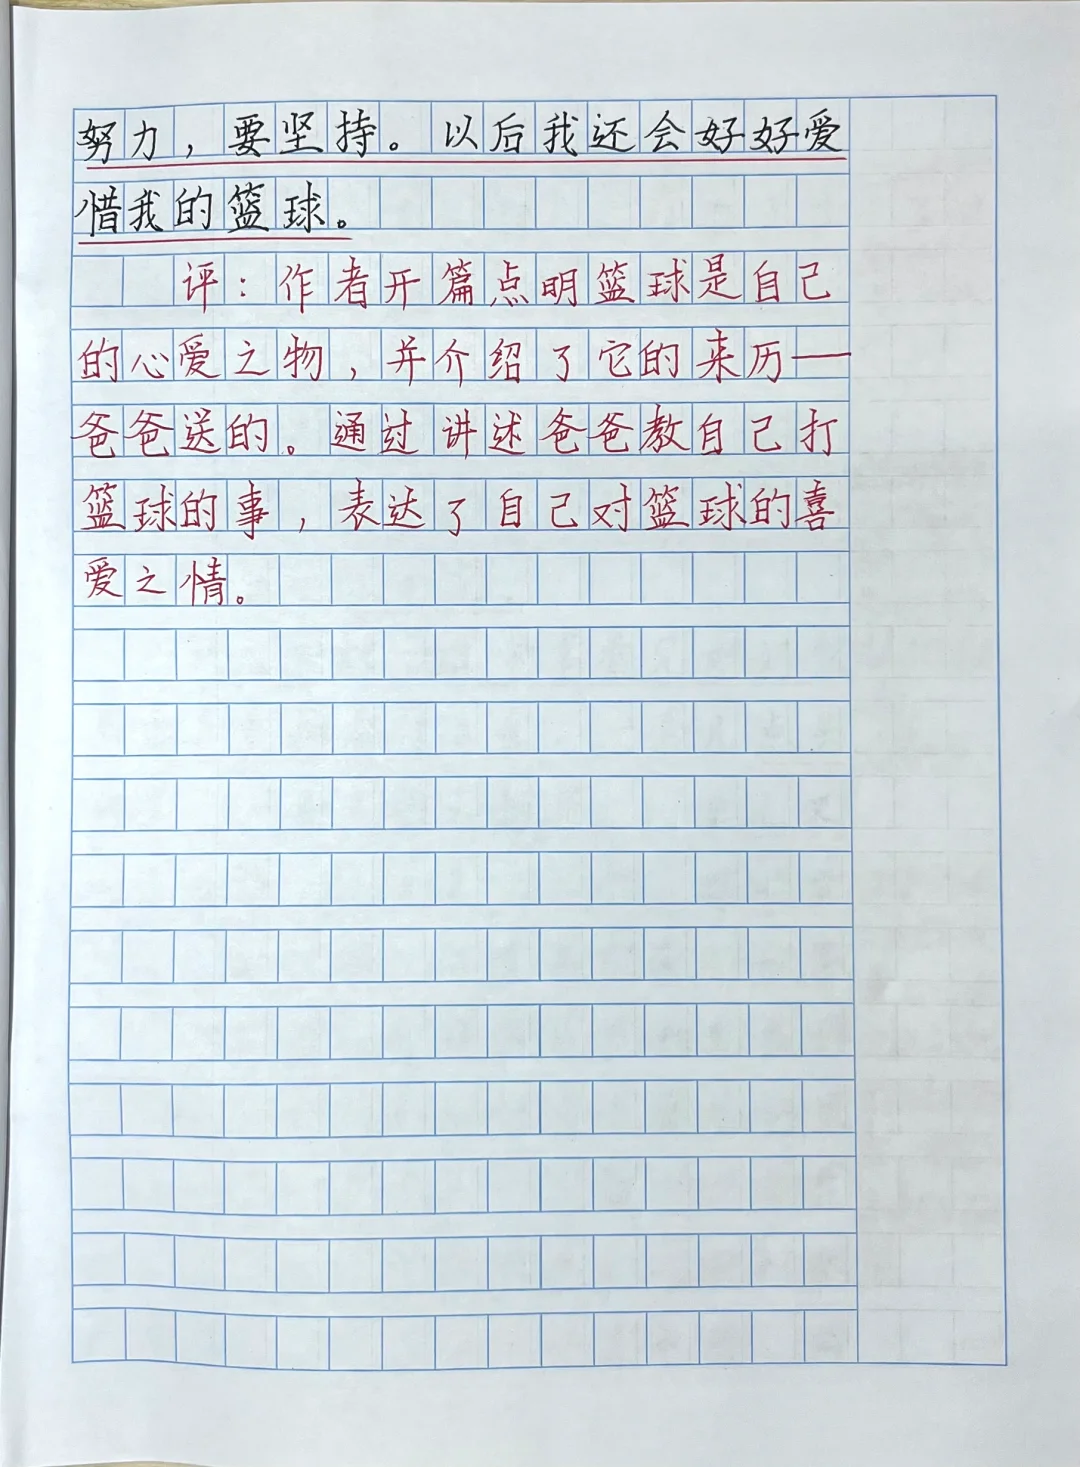 努力，要坚持。以后我还会好好爱
惜我的篮球。
评：作者开篇点明篮球是自己
的心爱之物，并介绍了它的来历——
爸爸送的。通过讲述爸爸教自己打
篮球的事，表达了自己对篮球的喜
爱之情。